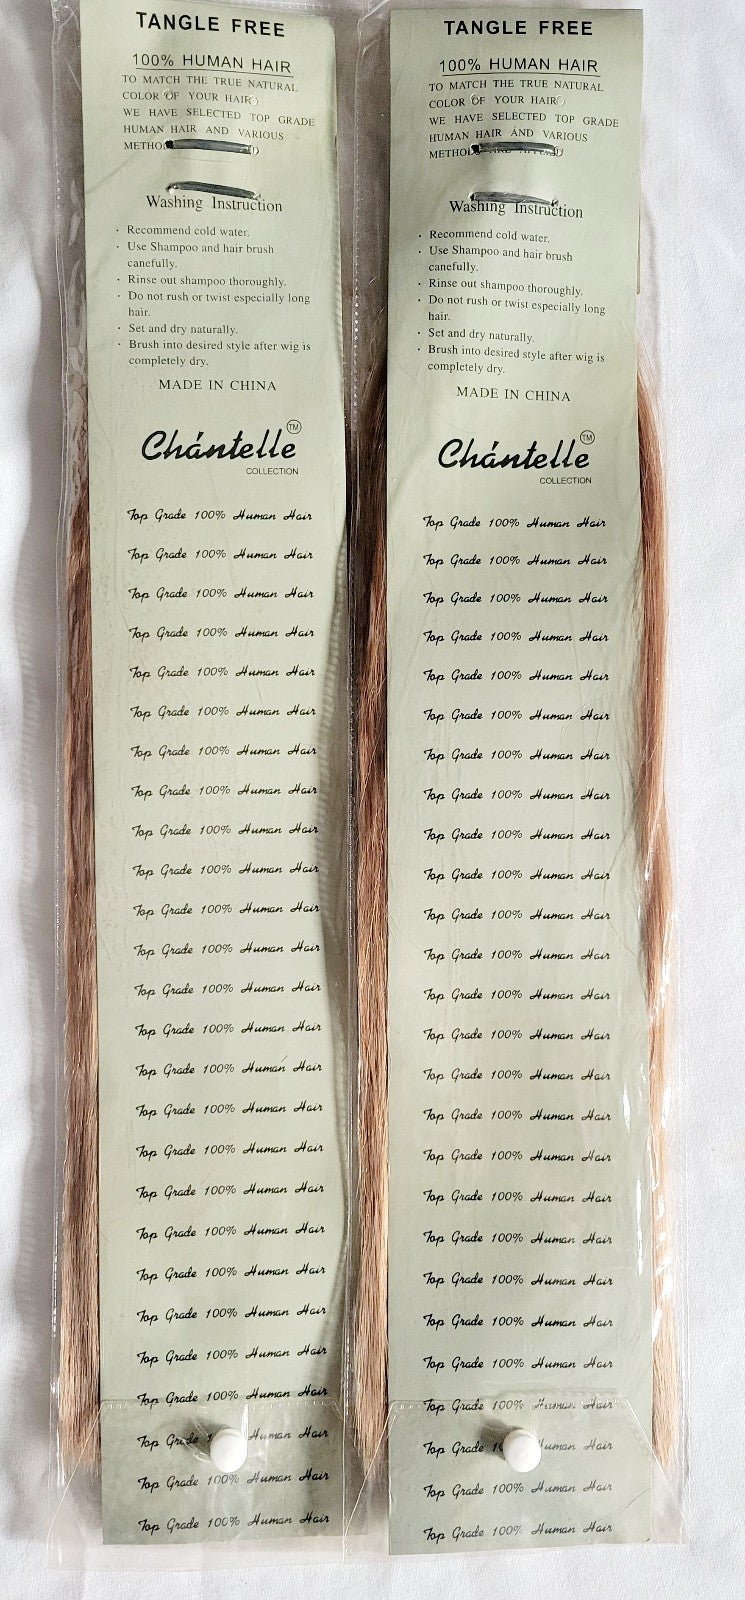 TANGLE FREE
100% HUMAN HAIR
TO MATCH THE TRUE NATURAL
COLOR OF YOUR HAIR
WE HAVE SELECTED TOP GRADE
HUMAN HAIR AND VARIOUS
Washing Instruction
· Recommend cold water.
· Use Shampoo and hair brush
canefully.
· Rinse out shampoo thoroughly.
· Do not rush or twist especially long
hair.
· Set and dry naturally.
· Brush into desired style after wig is
completely dry.
MADE IN CHINA
Chántelle TM
COLLECTION
Top Grade 100% Human Hair
Top Grade 100% Human Hair
Top Grade 100% Human Hair
Top Grade 100% Human Hair
Top Grade 100% Human Hair
Top Grade 100% Human Hair
Top Grade 100% Human Hair
Top Grade 100% Human Hair
Top Grade 100% Human Hair
Top Grade 100% Human Hair
Top Grade 100% Human Hair
Top Grade 100% Human Hair
Top Grade 100% Human Hair
Top Grade 100% Human Hair
Top Grade 100% Human Hair
Top Grade 100% Human Hair
Top Grade 100% Human Hair
Top Grade 100% Human Hair
Top Grade 100% Human Hair
Top Grade 100% Human Hair
Top Grade 100% Human Hair
Top Grade 100% Human Hair
Top Grade 100% Human Hair
Top Grade Human Hair
Top Grade 100% Human Hair
Top Grade 100% Human Hair
TANGLE FREE
100% HUMAN HAIR
TO MATCH THE TRUE NATURAL
COLOR OF YOUR HAIR
WE HAVE SELECTED TOP GRADE
HUMAN HAIR AND VARIOUS
Washing Instruction
· Recommend cold water.
· Use Shampoo and hair brush
canefully.
· Rinse out shampoo thoroughly.
· Do not rush or twist especially long
hair.
· Set and dry naturally.
· Brush into desired style after wig is
completely dry.
MADE IN CHINA
Chántelle TM
COLLECTION
Top Grade 100% Human Hair
Top Grade 100% Human Hair
Top Grade 100% Human Hair
Top Grade 100% Human Hair
Top Grade 100% Human Hair
Top Grade 100% Human Hair
Top Grade 100% Human Hair
Top Grade 100% Human Hair
Top Grade 100% Human Hair
Top Grade 100% Human Hair
Top Grade 100% Human Hair
Top Grade 100% Human Hair
Top Grade 100% Human Hair
Top Grade 100% Human Hair
Top Grade 100% Human Hair
Top Grade 100% Human Hair
Top Grade 100% Human Hair
Top Grade 100% Human Hair
Top Grade 100% Human Hair
Top Grade 100% Human Hair
Top Grade 100% Human Hair
Top Grade 100% Human Hair
Top Grade 100% Human Hair
Top Grade Human Hair
Top Grade 100% Human Hair
Top Grade 100% Human Hair